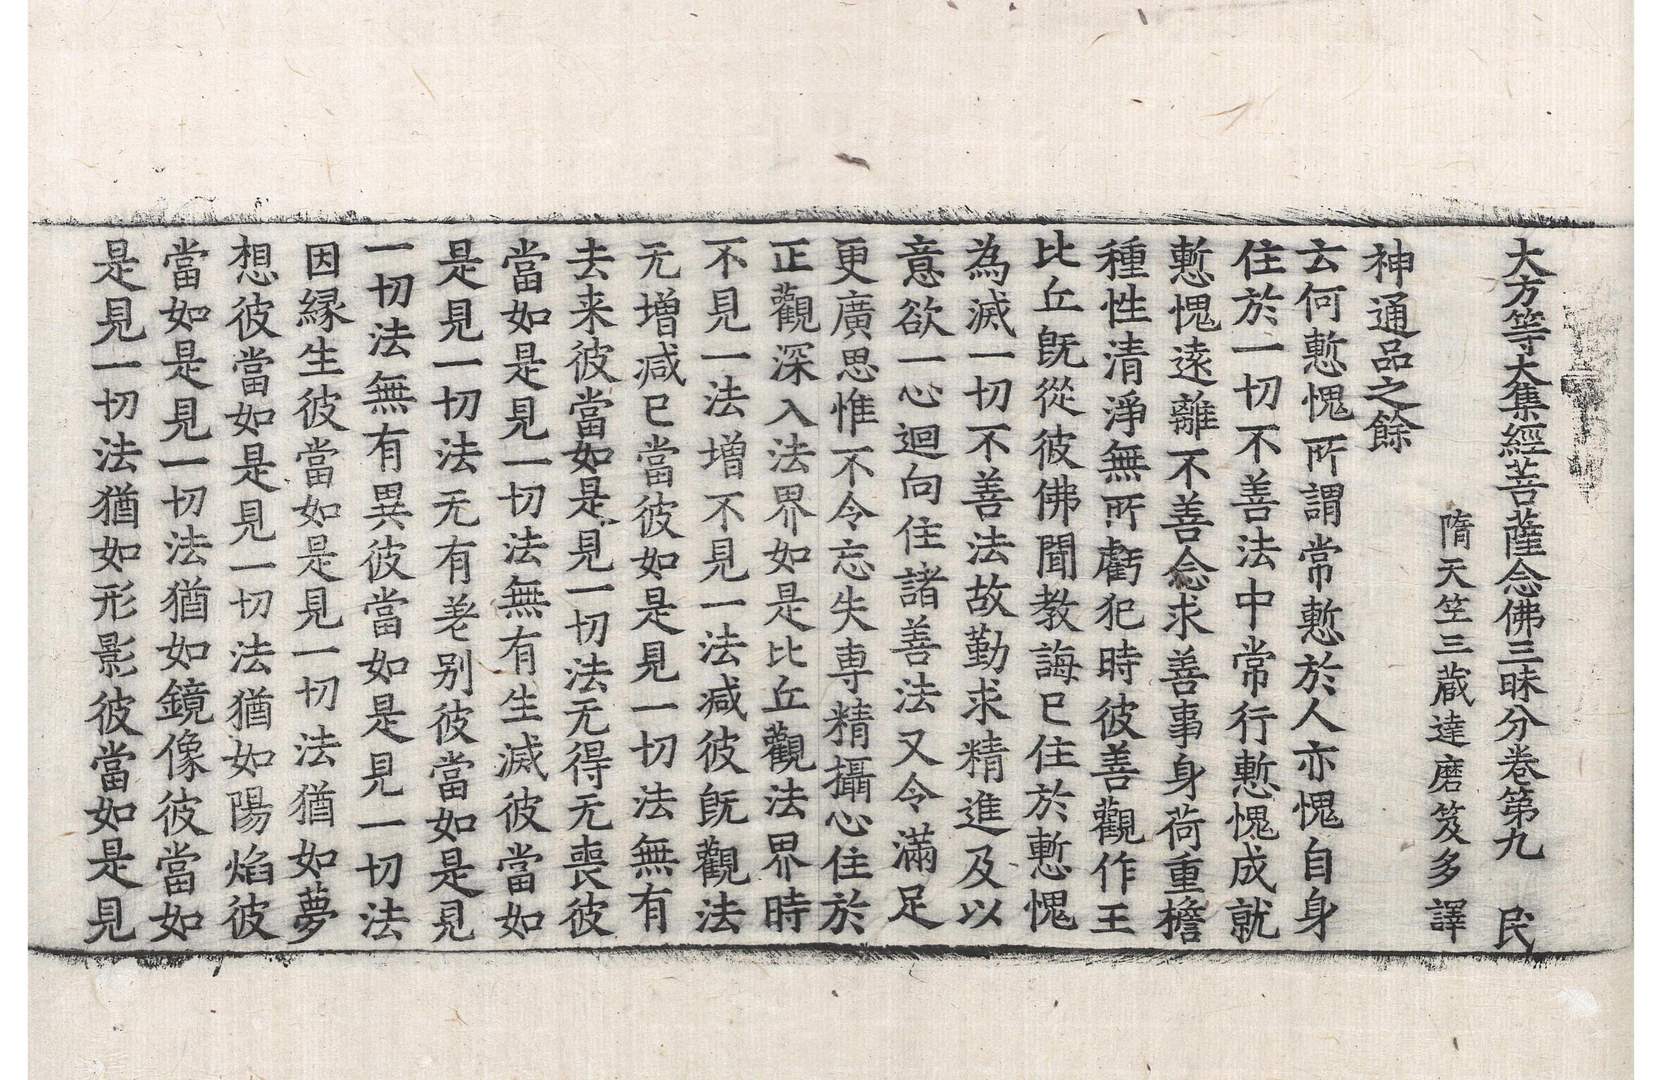 大方等大集經菩薩念佛三昧分卷第九　民
隋天竺三蔵達磨笈多譯
神通品之餘
云何慙愧所謂常慙於人亦愧自身
住於一切不善法中常行慙愧成就
慙愧遠離不善念求善事身荷重擔
種性清淨無所虧犯時彼善觀作王
比丘旣從彼佛聞教誨已住於慙愧
為滅一切不善法故勤求精進及以
意欲一心迴向住諸善法又令滿足
更廣思惟不令忘失專精攝心住於
正觀深入法界如是比丘觀法界時
不見一法增不見一法減彼旣觀法
无增減已當彼如是見一切法無有
去来彼當如是見一切法无得无喪彼
當如是見一切法無有生滅彼當如
是見一切法无有差别彼當如是見
一切法無有異彼當如是見一切法
因縁生彼當如是見一切法猶如夢
想彼當如是見一切法猶如陽焰彼
當如是見一切法猶如鏡像彼當如
是見一切法猶如形影彼當如是見